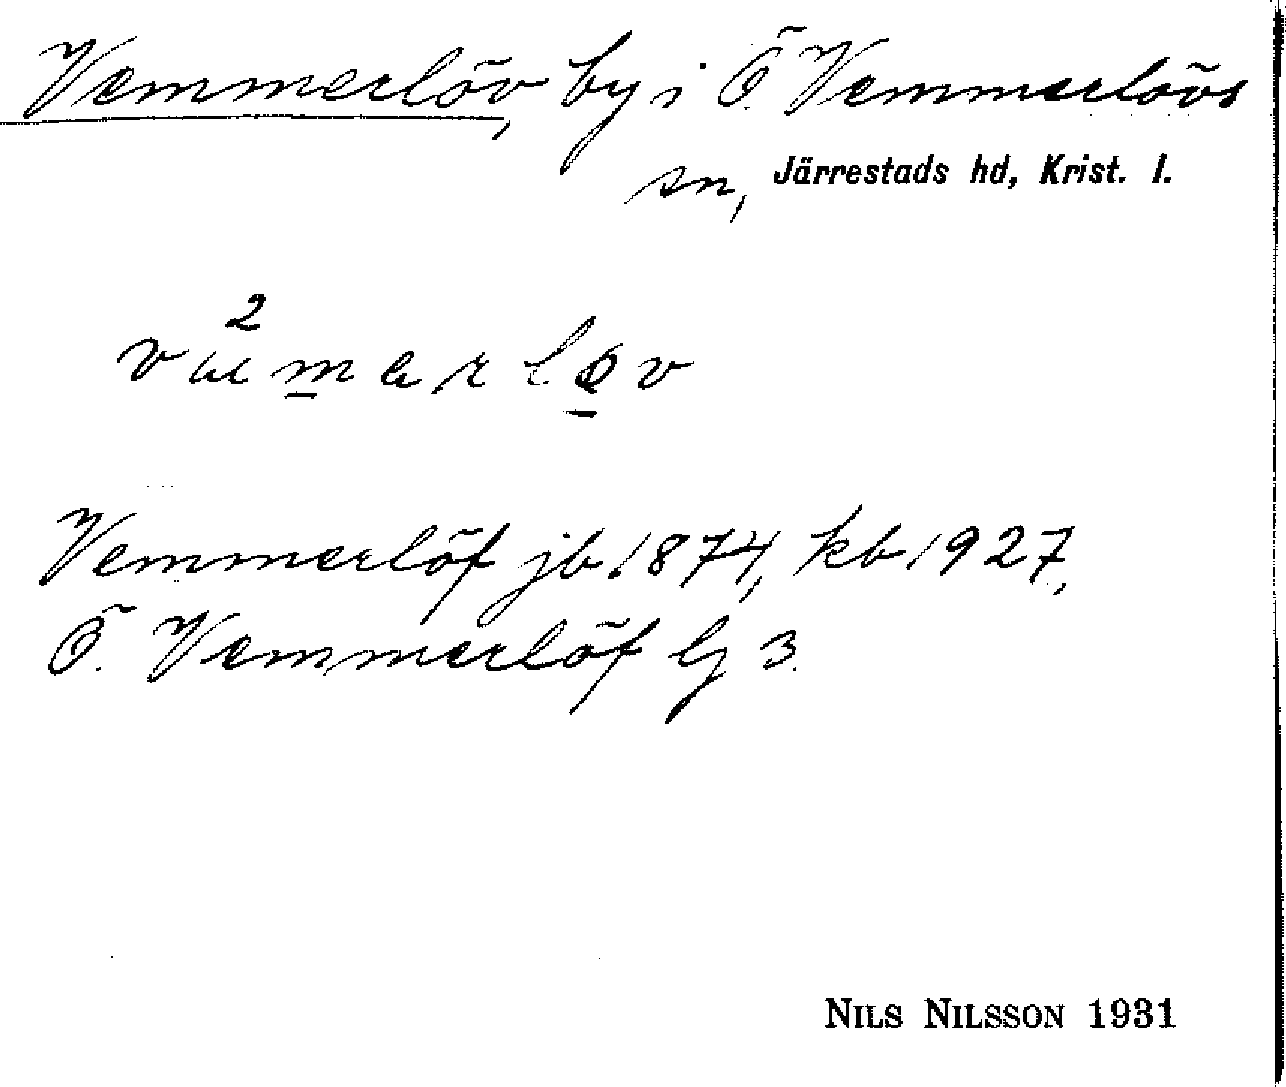 Vemmerlöv, by i Ö. Vemmerlövs
sn, Järrestads hd, Krist. l.
Vemmerlöf jb 1874, kb 1927,
Ö. Vemmerlöf G 3.
NILS NILSSON 1931